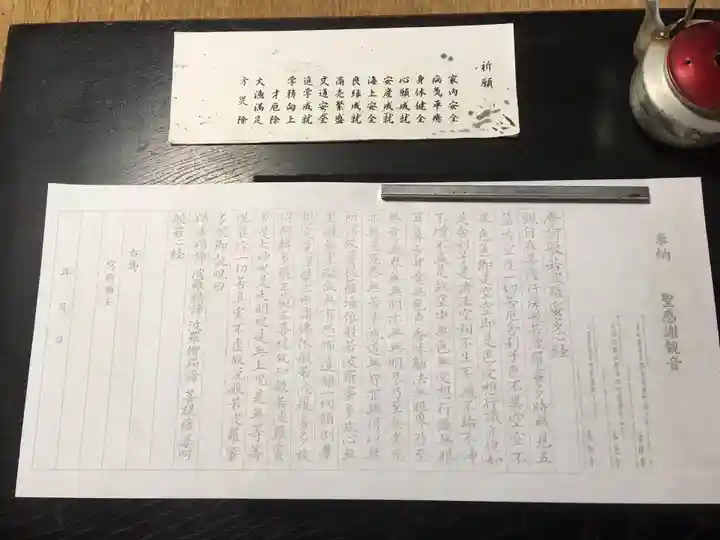 祈願
家内安全
病気平癒
身体健全
心願成就
安産成就
海上安全
良縁成就
商売繁盛
交通安全
進学成就
学特向上
才厄除
大漁満足
方災除
奉納 聖感謝観音
摩訶般若波羅蜜多心経
観自在菩薩行深般若波羅蜜多時照見五
蘊皆空度一切苦厄舎利子色不異空空不
異色色即是空空即是色受想行識亦復如
是舎利子是諸法空相不生不滅不垢不浄
不増不減是故空中無色無受想行識無眼
耳鼻舌身意無色声香味触法無眼界乃至
無意識界無無明亦無無明尽乃至無老死
亦無老死尽無苦集滅道無智亦無得以無
所得故菩提薩埵依般若波羅蜜多故心無
罣礙無罣礙故無有恐怖遠離一切顛倒夢
想究竟涅槃三世諸佛依般若波羅蜜多故
得阿耨多羅三藐三菩提故知般若波羅蜜
多是大神呪是大明呪是無上呪是無等等
呪能除一切苦真実不虚故説般若波羅蜜
多呪即説呪曰
羯諦羯諦 波羅羯諦 波羅僧羯諦 菩提薩婆訶
般若心経
為
年 月 日